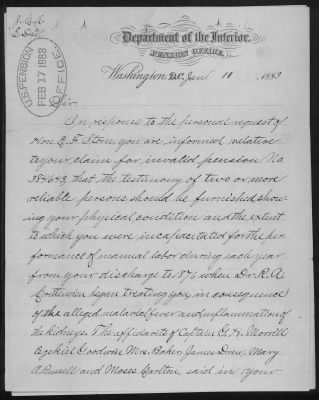 Department of the Interior,
PENSION OFFICE,
Washington, D.C. Jan'y 10, 1883
U.S. PENSION OFFICE
FEB 17 1883
Sir
In response to the personal request of
Hon E. F. Stone you are informed relative
to your claim for invalid pension No
384643 that the testimony of two or more
reliable persons should be furnished show-
ing your physical condition and the extent
to which you were incapacitated for the per-
formance of manual labor during each year
from your discharge to 1876 when Dr. R. A.
began treating you, in consequence
of the alleged malarial fever and inflammation of
the kidneys The affidavits of Captain H. Morrill
Ezekiel Goodwin Mrs Baker, James Drew, Mary
A Russell and Moses Carlton said in your